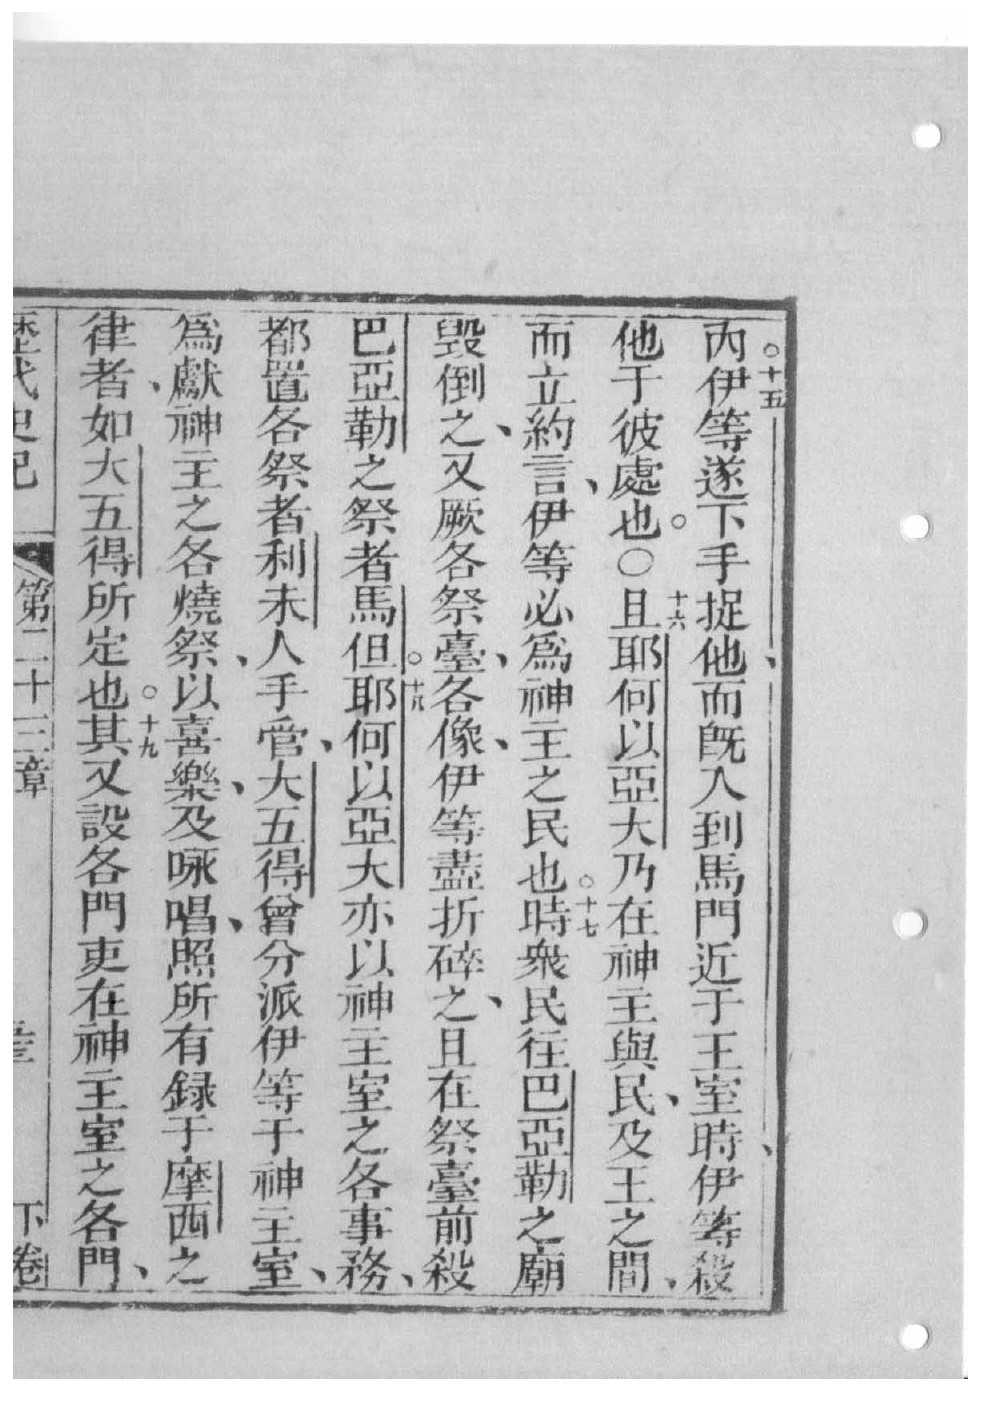 內○十五伊等遂下手捉他、而既入到馬門近于王室時、伊等殺
他于彼處也。○十六且耶何以亞大乃在神主與民、及王之間、
而立約言、伊等必爲神主之民也。十七時衆民往巴亞勒之廟
毀倒之、又厥各祭臺、各像、伊等盡折碎之、且在祭臺前殺
巴亞勒之祭者馬但。十八耶何以亞大亦以神主室之各事務、
都置各祭者利未人手管、大五得曾分派伊等于神主室、
爲獻神主之各燒祭、以喜樂、及咏唱、照所有録于摩西之
律者、如大五得所定也。十九其又設各門吏在神主室之各門、
歷代史記 第二十三章 下卷